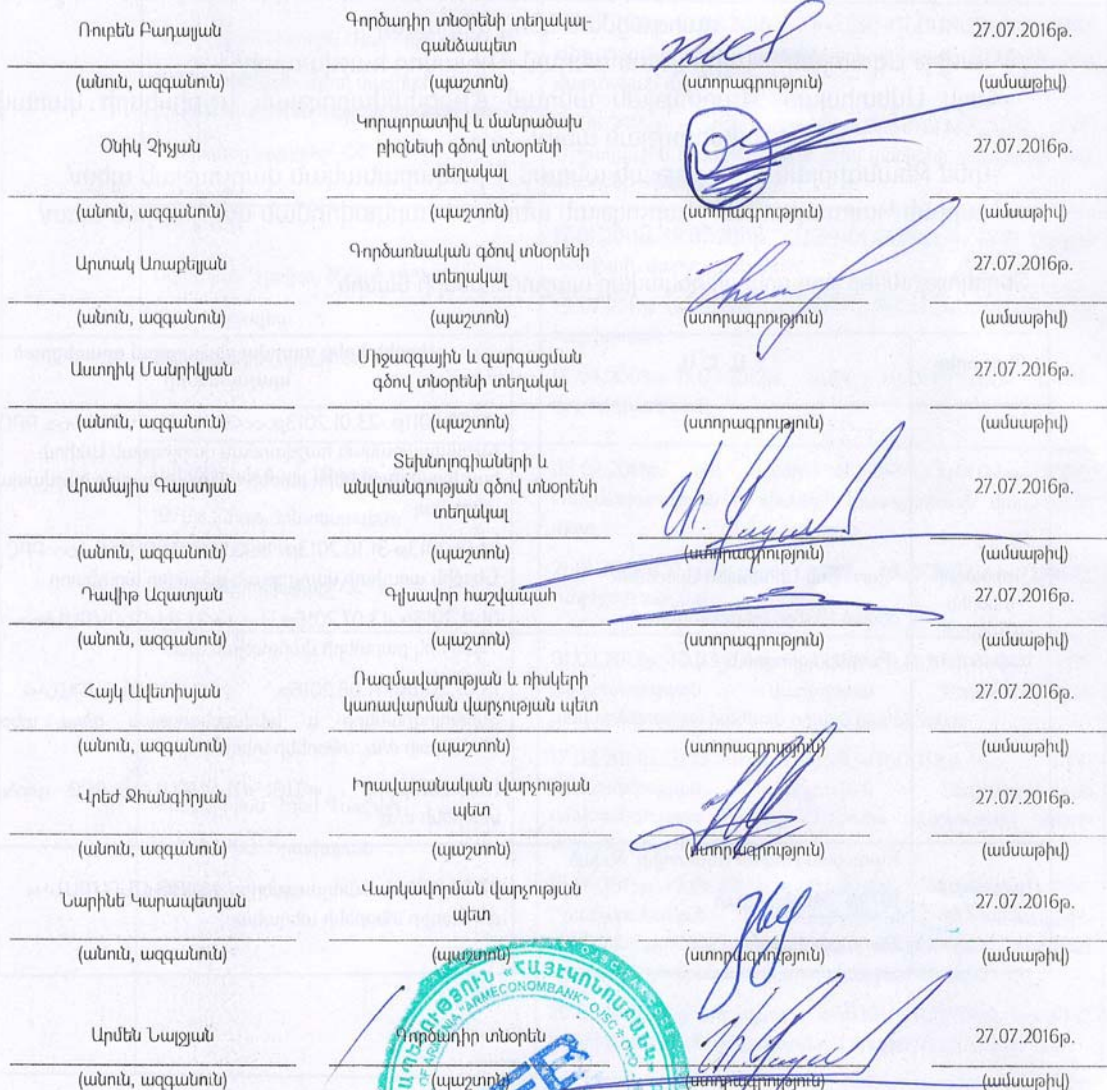 Ռուբեն Բադալյան
Գործադիր տնօրենի տեղակալ-
գանձապետ
27.07.2016թ.
(անուն, ազգանուն) (պաշտոն) (ստորագրություն) (ամսաթիվ)
Օնիկ Չիչյան
Կորպորատիվ և մանրածախ
բիզնեսի գծով տնօրենի
տեղակալ
27.07.2016թ.
(անուն, ազգանուն) (պաշտոն) (ստորագրություն) (ամսաթիվ)
Արտակ Առաքելյան
Գործառնական գծով տնօրենի
տեղակալ
27.07.2016թ.
(անուն, ազգանուն) (պաշտոն) (ստորագրություն) (ամսաթիվ)
Աստղիկ Մանրիկյան
Միջազգային և զարգացման
գծով տնօրենի տեղակալ
27.07.2016թ.
(անուն, ազգանուն) (պաշտոն) (ստորագրություն) (ամսաթիվ)
Արամայիս Գալստյան
Տեխնոլոգիաների և
անվտանգության գծով տնօրենի
տեղակալ
27.07.2016թ.
(անուն, ազգանուն) (պաշտոն) (ստորագրություն) (ամսաթիվ)
Դավիթ Ազատյան Գլխավոր հաշվապահ 27.07.2016թ.
(անուն, ազգանուն) (պաշտոն) (ստորագրություն) (ամսաթիվ)
Հայկ Ավետիսյան
Ռազմավարության և ռիսկերի
կառավարման վարչության պետ
27.07.2016թ.
(անուն, ազգանուն) (պաշտոն) (ստորագրություն) (ամսաթիվ)
Վրեժ Ջհանգիրյան
Իրավաբանական վարչության
պետ
27.07.2016թ.
(անուն, ազգանուն) (պաշտոն) (ստորագրություն) (ամսաթիվ)
Նարինե Կարապետյան
Վարկավորման վարչության
պետ
27.07.2016թ.
(անուն, ազգանուն) (պաշտոն) (ստորագրություն) (ամսաթիվ)
«ՀԱՅԷԿՈՆՈՄԲԱՆԿ»
"ARMECONOMBANK" OJSC
Արմեն Նալջյան Գործադիր տնօրեն 27.07.2016թ.
(անուն, ազգանուն) (պաշտոն) (ստորագրություն) (ամսաթիվ)